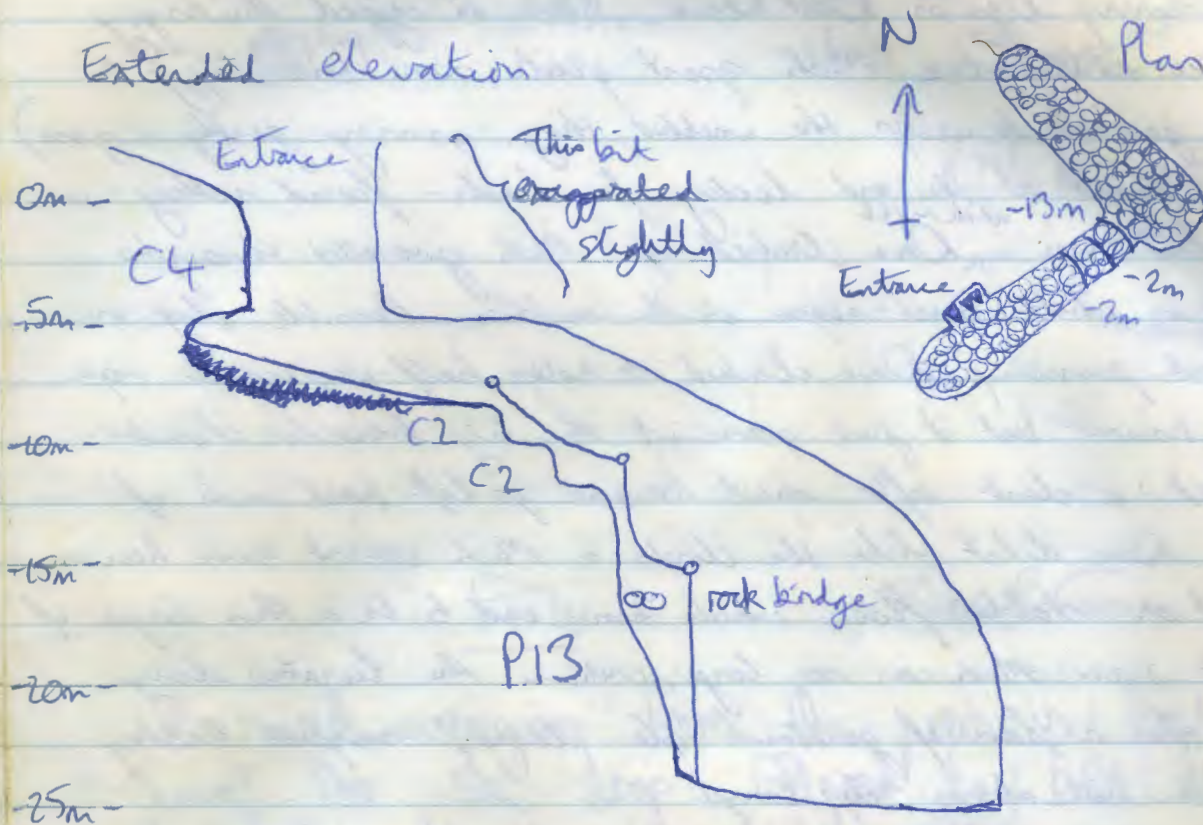 Extended elevation
N
Plan
Entrance
This bit
exaggerated
slightly
0m
C4
-5m
-10m
C2
C2
-15m
rock bridge
P13
-20m
-25m
-13m
Entrance
-2m
-2m